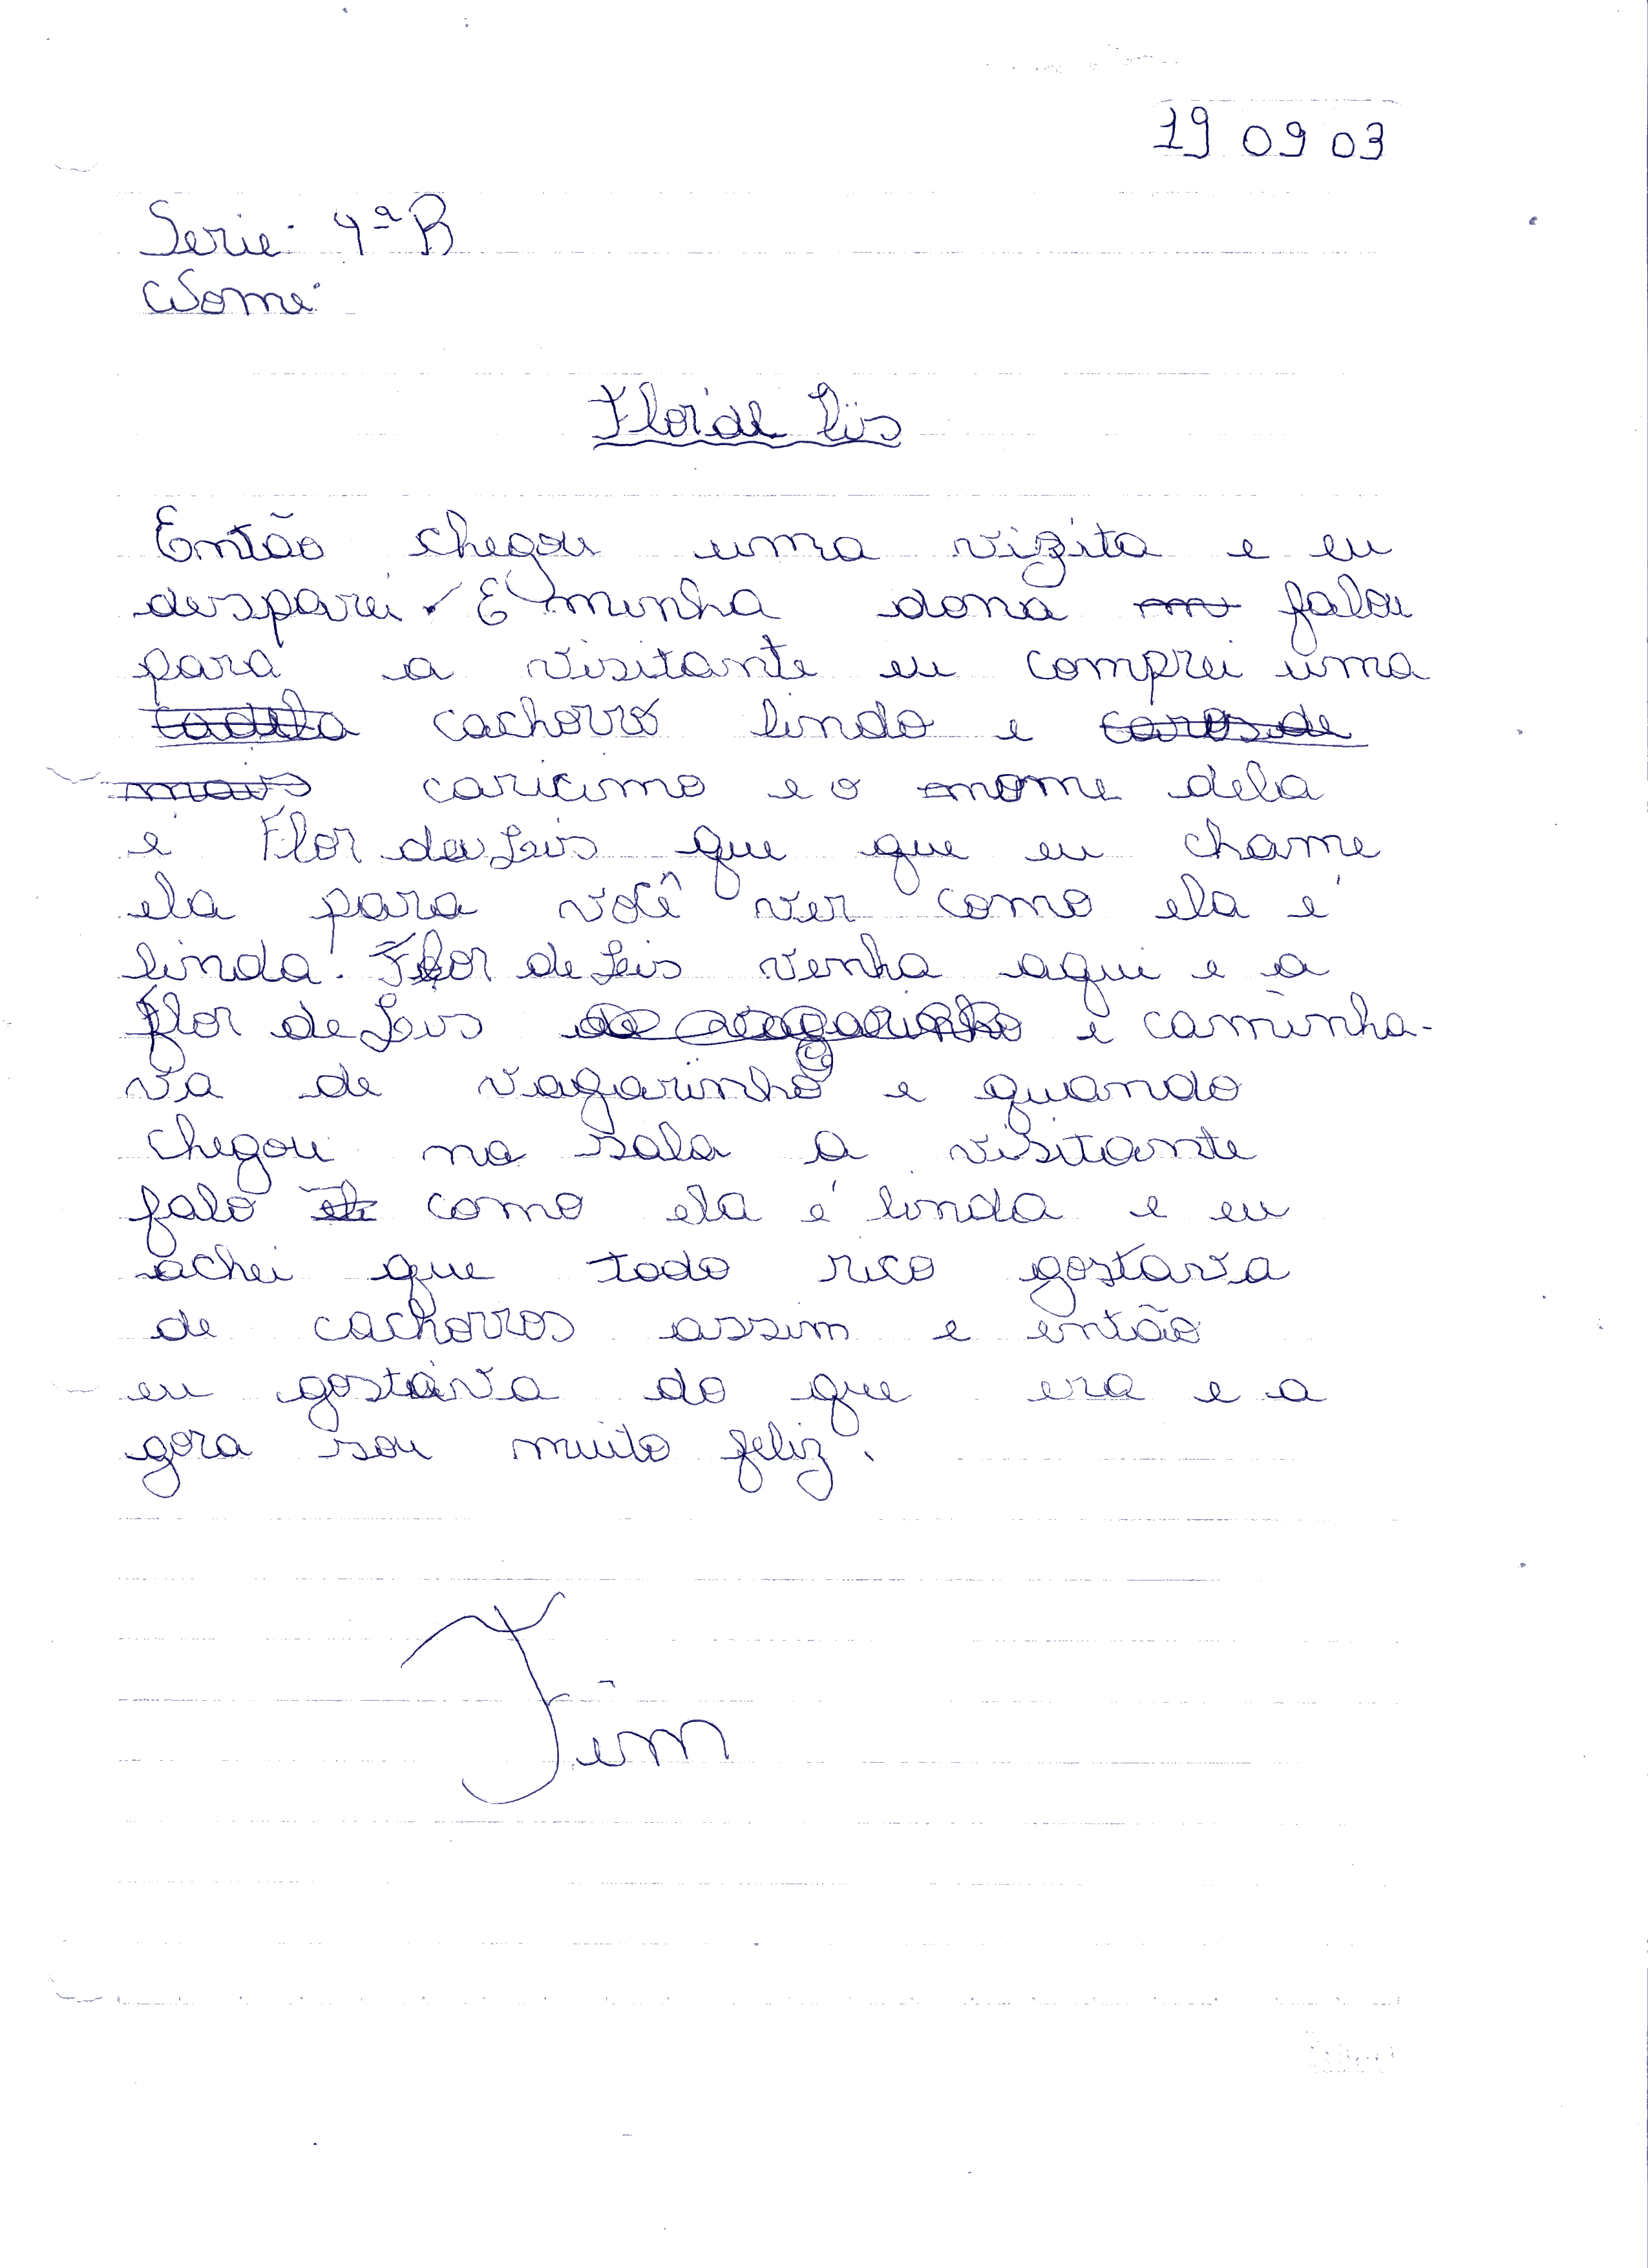 19 09 03
Serie: 4ª B
Nome:
Flor de Lis
Então chegou uma vizita e eu
desparei. E minha dona falou
para a visitante eu comprei uma
cachorro lindo e
caricimo e o nome dela
e Flor de Leis que que eu chame
ela para você ver como ela é
linda. Flor de Leis venha aqui e a
Flor de Leis e caminha-
va de vagarinho e quando
chegou na sala a visitante
falo como ela é linda e eu
achei que todo rico gostava
de cachorros assim e então
eu gostava do que era e a
gora sou muito feliz.
Fim